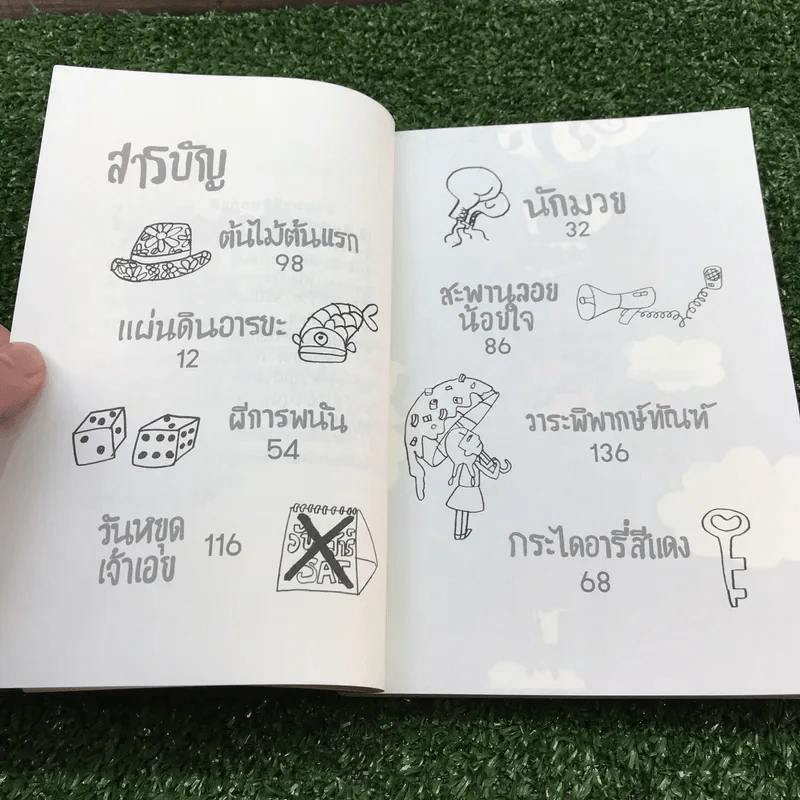 สารบัญ
ต้นไม้ต้นแรก
98
แผ่นดินอารยะ
12
ผีการพนัน
54
วันหยุด
เจ้าเอย
116
SAT
นักมวย
32
สะพานลอย
น้อยใจ
86
วาระพิพากษ์ทัณฑ์
136
กระไดอารี่สีแดง
68